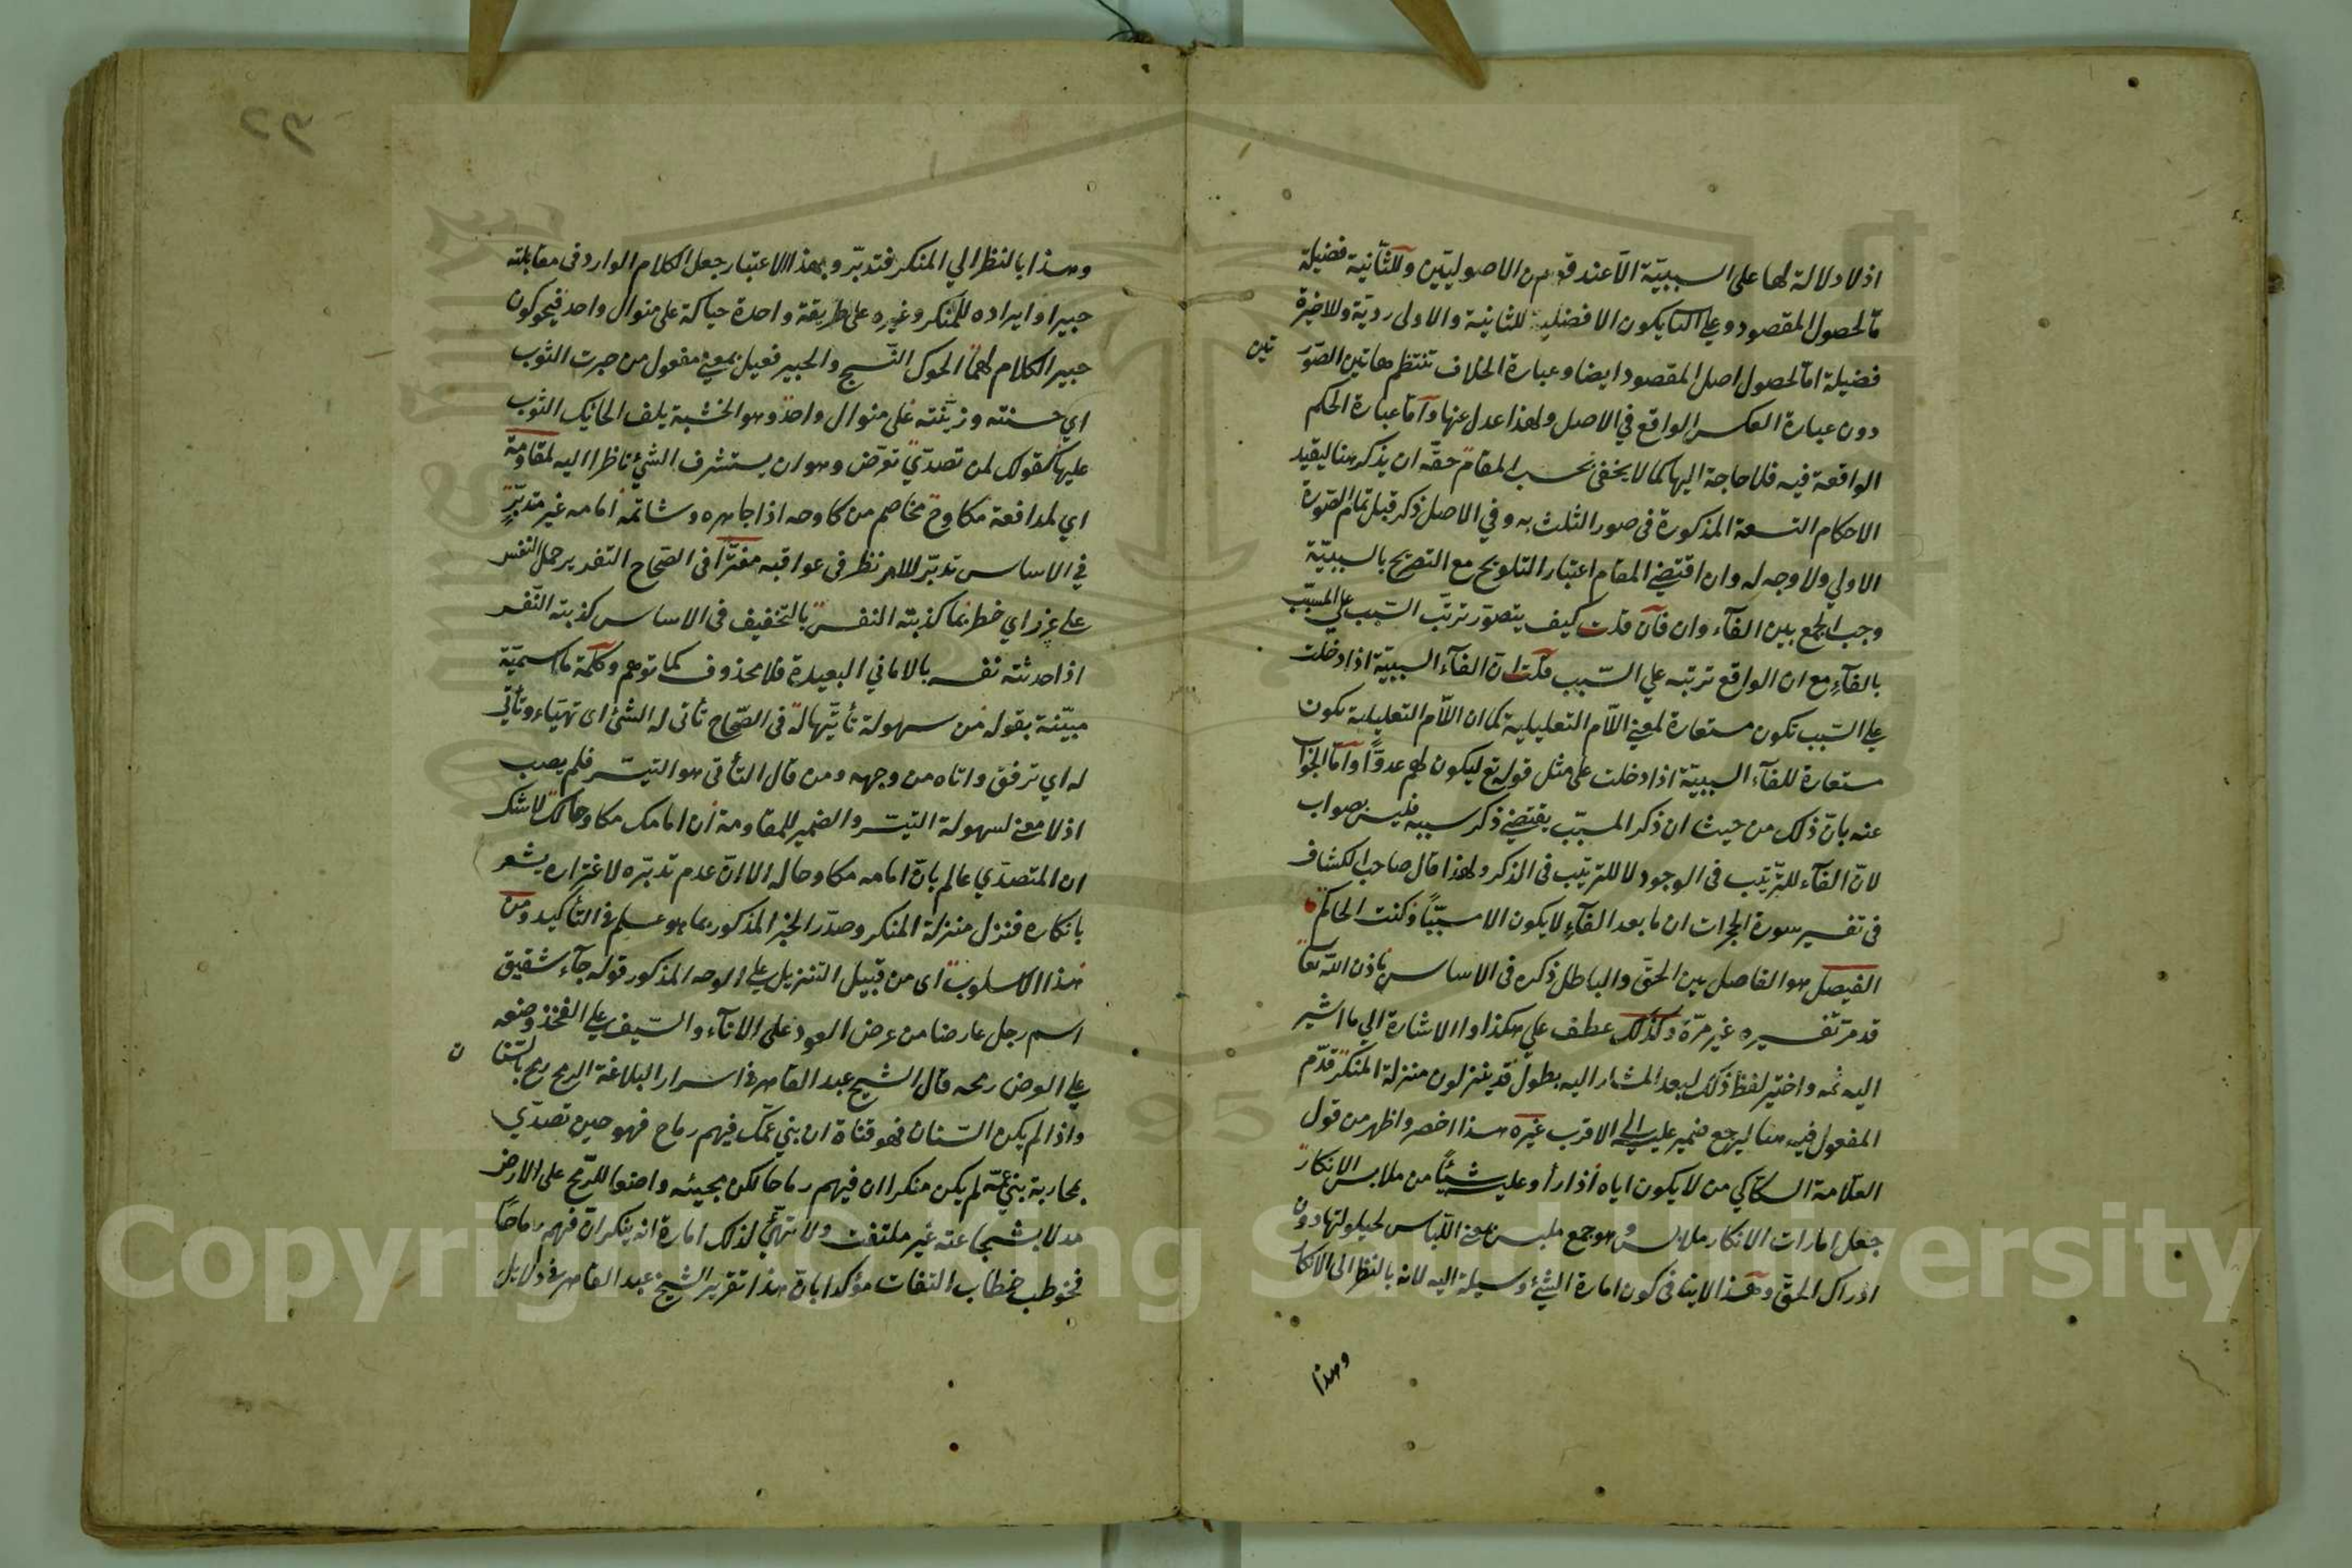 اذ لا دلالة لها على السببيّة الّا عند قوم من الاصوليّين وللثّانية فضيلة
مّا لحصول المقصود وعلى الثا يكون الافضلية للثانية والاولى رديّة وللاخيرة
فضيلة امّا لحصول اصل المقصود ايضا وعبارة الخلاف تنتظم هاتين الصّور
تين
دون عبارة العكس الواقع في الاصل ولهذا عدل عنها وآمّا عبارة الحكم
الواقعة فيه فلا حاجة اليها كما لا يخفى بحسب المقام حقّه ان يذكر هنا ليقيد
الاحكام التسعة المذكورة في صور الثلث به وفي الاصل ذكر قبل تمام الصّورة
الاولي ولا وجه له وان اقتضى المقام اعتبار التلويح مع التصريح بالسببيّة
وجب الجمع بين الفآء وان فآن قلت كيف يتصوّر ترتّب السّبب على المسبّب
بالفآء مع ان الواقع ترتبه علي السّبب قلت انّ الفآء السببيّة اذا دخلت
على السّبب تكون مستعارة لمعنى اللّام التعليلية كما ان اللّام التعليلية تكون
مستعارة للفآء السببيّة اذا دخلت على مثل قوله تع ليكون لهم عدوًّا وامّا الجواب
عنه بانّ ذلك من حيث ان ذكر المسبّب يقتضي ذكر سببه فليس بصواب
لانّ الفآء للترّتيب فى الوجود لا للترتيب فى الذكر ولهذا قال صاحب الكشاف
فى تفسير سورة الحجرات ان ما بعد الفآء لا يكون الا مسبّبًا وكنت الحاكم
الفيصل هو الفاصل بين الحقّ والباطل ذكره فى الاساس باذن الله تعا
قد مرّ تفسيره غير مرّة وكذلك عطف علي هكذا والاشارة الي ما اشير
اليه ثمه واختير لفظ ذلك لبعد المشار اليه بطول قد ينزلون منزلة المنكر قدّم
المفعول فيه هنا ليرجع ضمير عليه الى الاقرب غيره هذا اخصر واظهر من قول
العلّامة السكّاكي من لا يكون اياه اذا رأوا عليه شيئًا من ملابس الانكار
جعل امارات الانكار ملابس وهو جمع ملبس بمعنى اللّباس لحيلولتها دون
ادراك الحقّ وهذا لا ينافى كون امارة الشئ وسيلة اليه لانه بالنظر الى الانكا
وهذا
وهذا بالنظر الي المنكر فتدبّر وبهذا الاعتبار جعل الكلام الوارد فى مقابلته
حبيرا وايراده للمنكر وغيره على طريقة واحدة حياكة على منوال واحد فيحوكون
حبير الكلام لهما الحوك النّسج والحبير فعيل بمعنى مفعول من حبرت الثوب
اي حسنته وزيّنته على منوال واحد وهو الخشبة يلف الحائك الثوب
عليها كقولك لمن تصدّي تعرّض وهو ان يستشرف الشئ ناظرا اليه لمقاومة
اي لمدافعة مكاوح مخاصم من كاوحه اذا جاهره وشاتمه أمامه غير متدبّرٍ
في الاساس تدبّر الامر نظر فى عواقبه مغترّا فى الصّحاح التغرير حمل النفس
على غرز اي خطر بما كذبته النفس بالتخفيف فى الاساس كذبته النّفس
اذا حدثته نفسه بالاماني البعيدة فلا محذوف كما توهم وكلمة ما اسميّة
مبيّنة بقوله من سهولة تأتّيها له فى الصّحاح تأتى له الشئ اى تهيّاء وتأتّى
له اي ترفق واتاه من وجهه ومن قال التأتى هو التيسّر فلم يصب
اذ لا معنى لسهولة التيسّر والضمير للمقاومة ان امامك مكاوحا لك لا شك
ان المتصدّي عالم بانّ امامه مكاوحا له الا انّ عدم تدبّره لاغتراره يشعر
بانكاره فنزل منزلة المنكر وصدّر الخبر المذكور بما هو علم فى التأكيد ومن
هذا الاسلوب اى من قبيل التنزيل على الوجه المذكور قوله جآء شقيق
اسم رجل عارضا من عرض العود على الانآء والسّيف على الفخذ وضعه
على العرض رمحه قال الشيخ عبد القاهر فى اسرار البلاغة الرمح رمح بالسّنا
ن
واذا لم يكن السّنان فهو قناة ان بني عمّك فيهم رماح فهو حين تصدّي
لمحاربة بني عمّه لم يكن منكرا ان فيهم رماحا لكن مجيئه واضعا للرّمح على الارض
مدلا بشجاعته غير ملتفت ولا تهيّئ لذلك امارة انه ينكر انّ فيهم رماحًا
فخوطب خطاب التفات مؤكدا بانّ هذا تقرير الشيخ عبد القاهر فى دلايل
Copyright © King Saud University